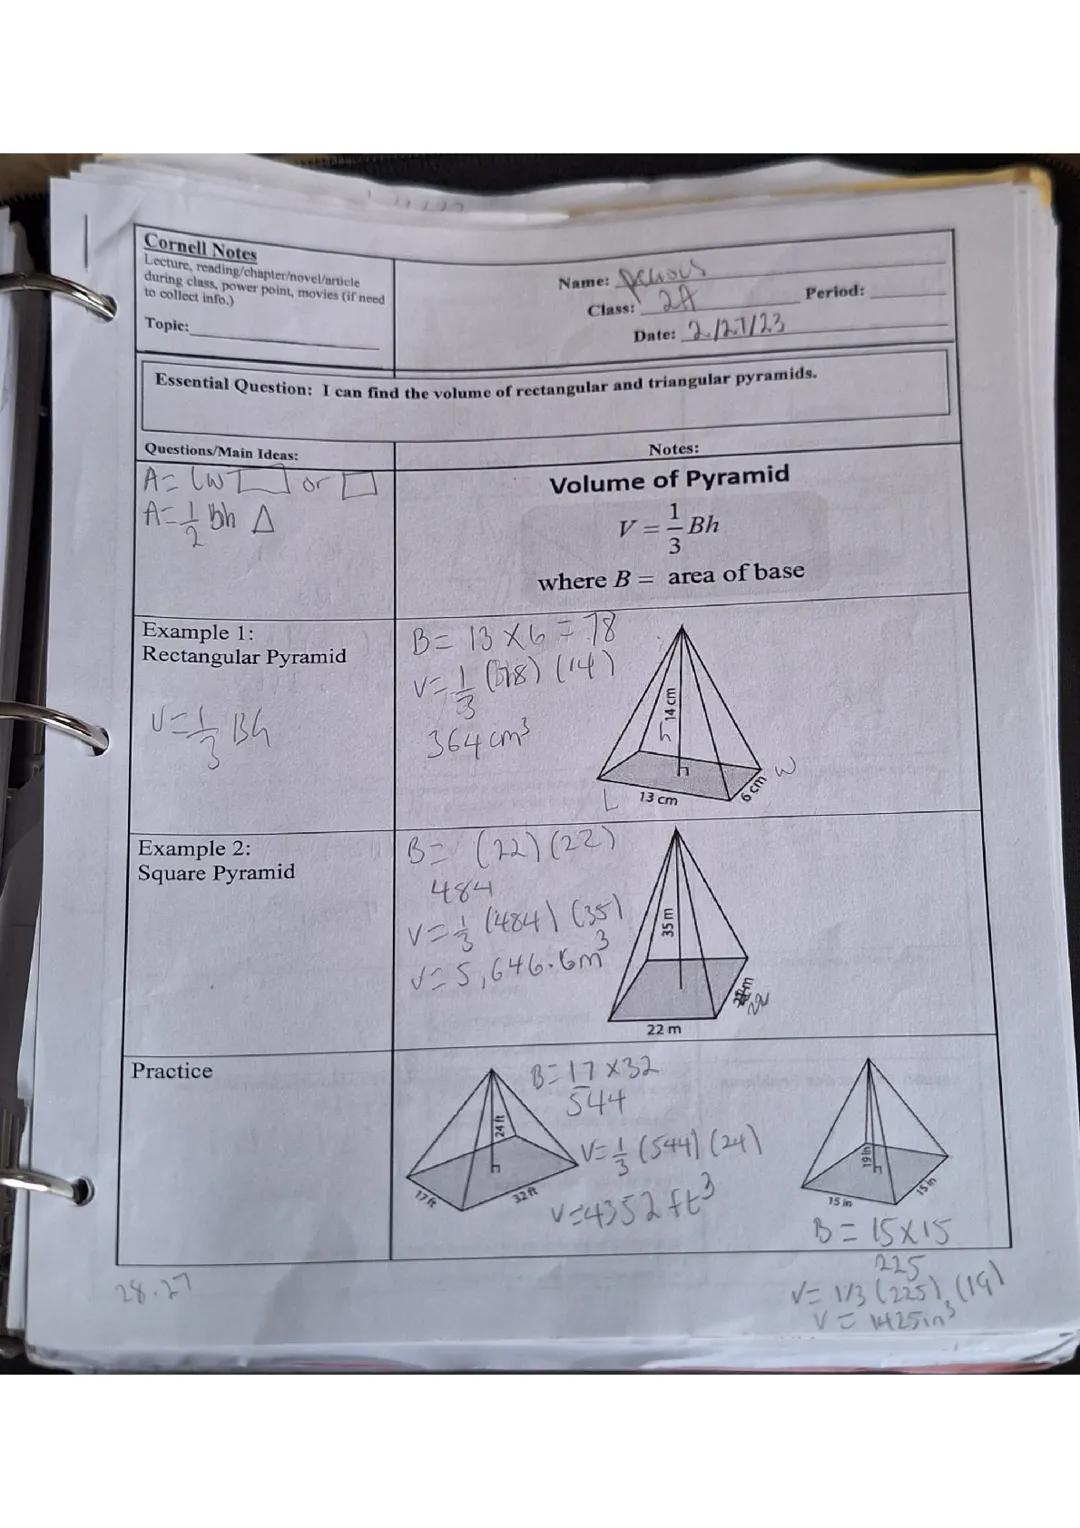 Cornell Notes
Lecture, reading/chapter/novel/article
during class, power point, movies (if need
to collect info.)
Topic:
Name:
Class: 2A
Period:
Date: 2/27/23
Essential Question: I can find the volume of rectangular and triangular pyramids.
Questions/Main Ideas:
A= lw or
A= 1/2 bh
Notes:
Volume of Pyramid
V = 1/3 Bh
where B = area of base
Example 1:
Rectangular Pyramid
V= 1/3 Bh
B= 13 x 6 = 78
V= 1/3 (78) (14)
364 cm³
h 14 cm
L 13 cm
6 cm W
Example 2:
Square Pyramid
B= (22) (22)
484
V= 1/3 (484) (35)
V= 5,646.6m³
35 m
22
22 m
Practice
24 ft
17 ft
32 ft
B= 17 x 32
544
V= 1/3 (544) (24)
V=4352 ft³
19 in
15 in
15 in
B = 15 x 15
225
V= 1/3 (225) (19)
V = 1425in³
28.27